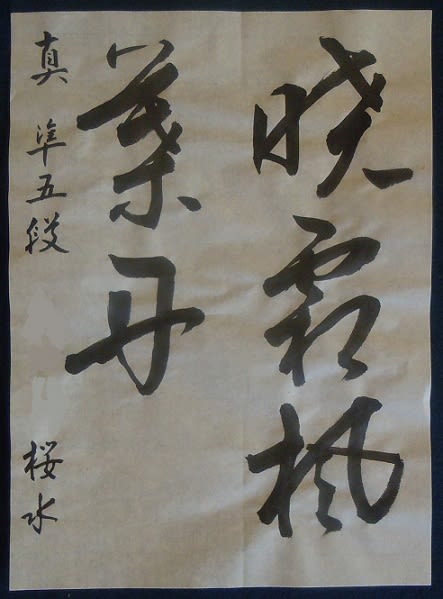 暁霜楓
葉丹
真 準五段 桜水